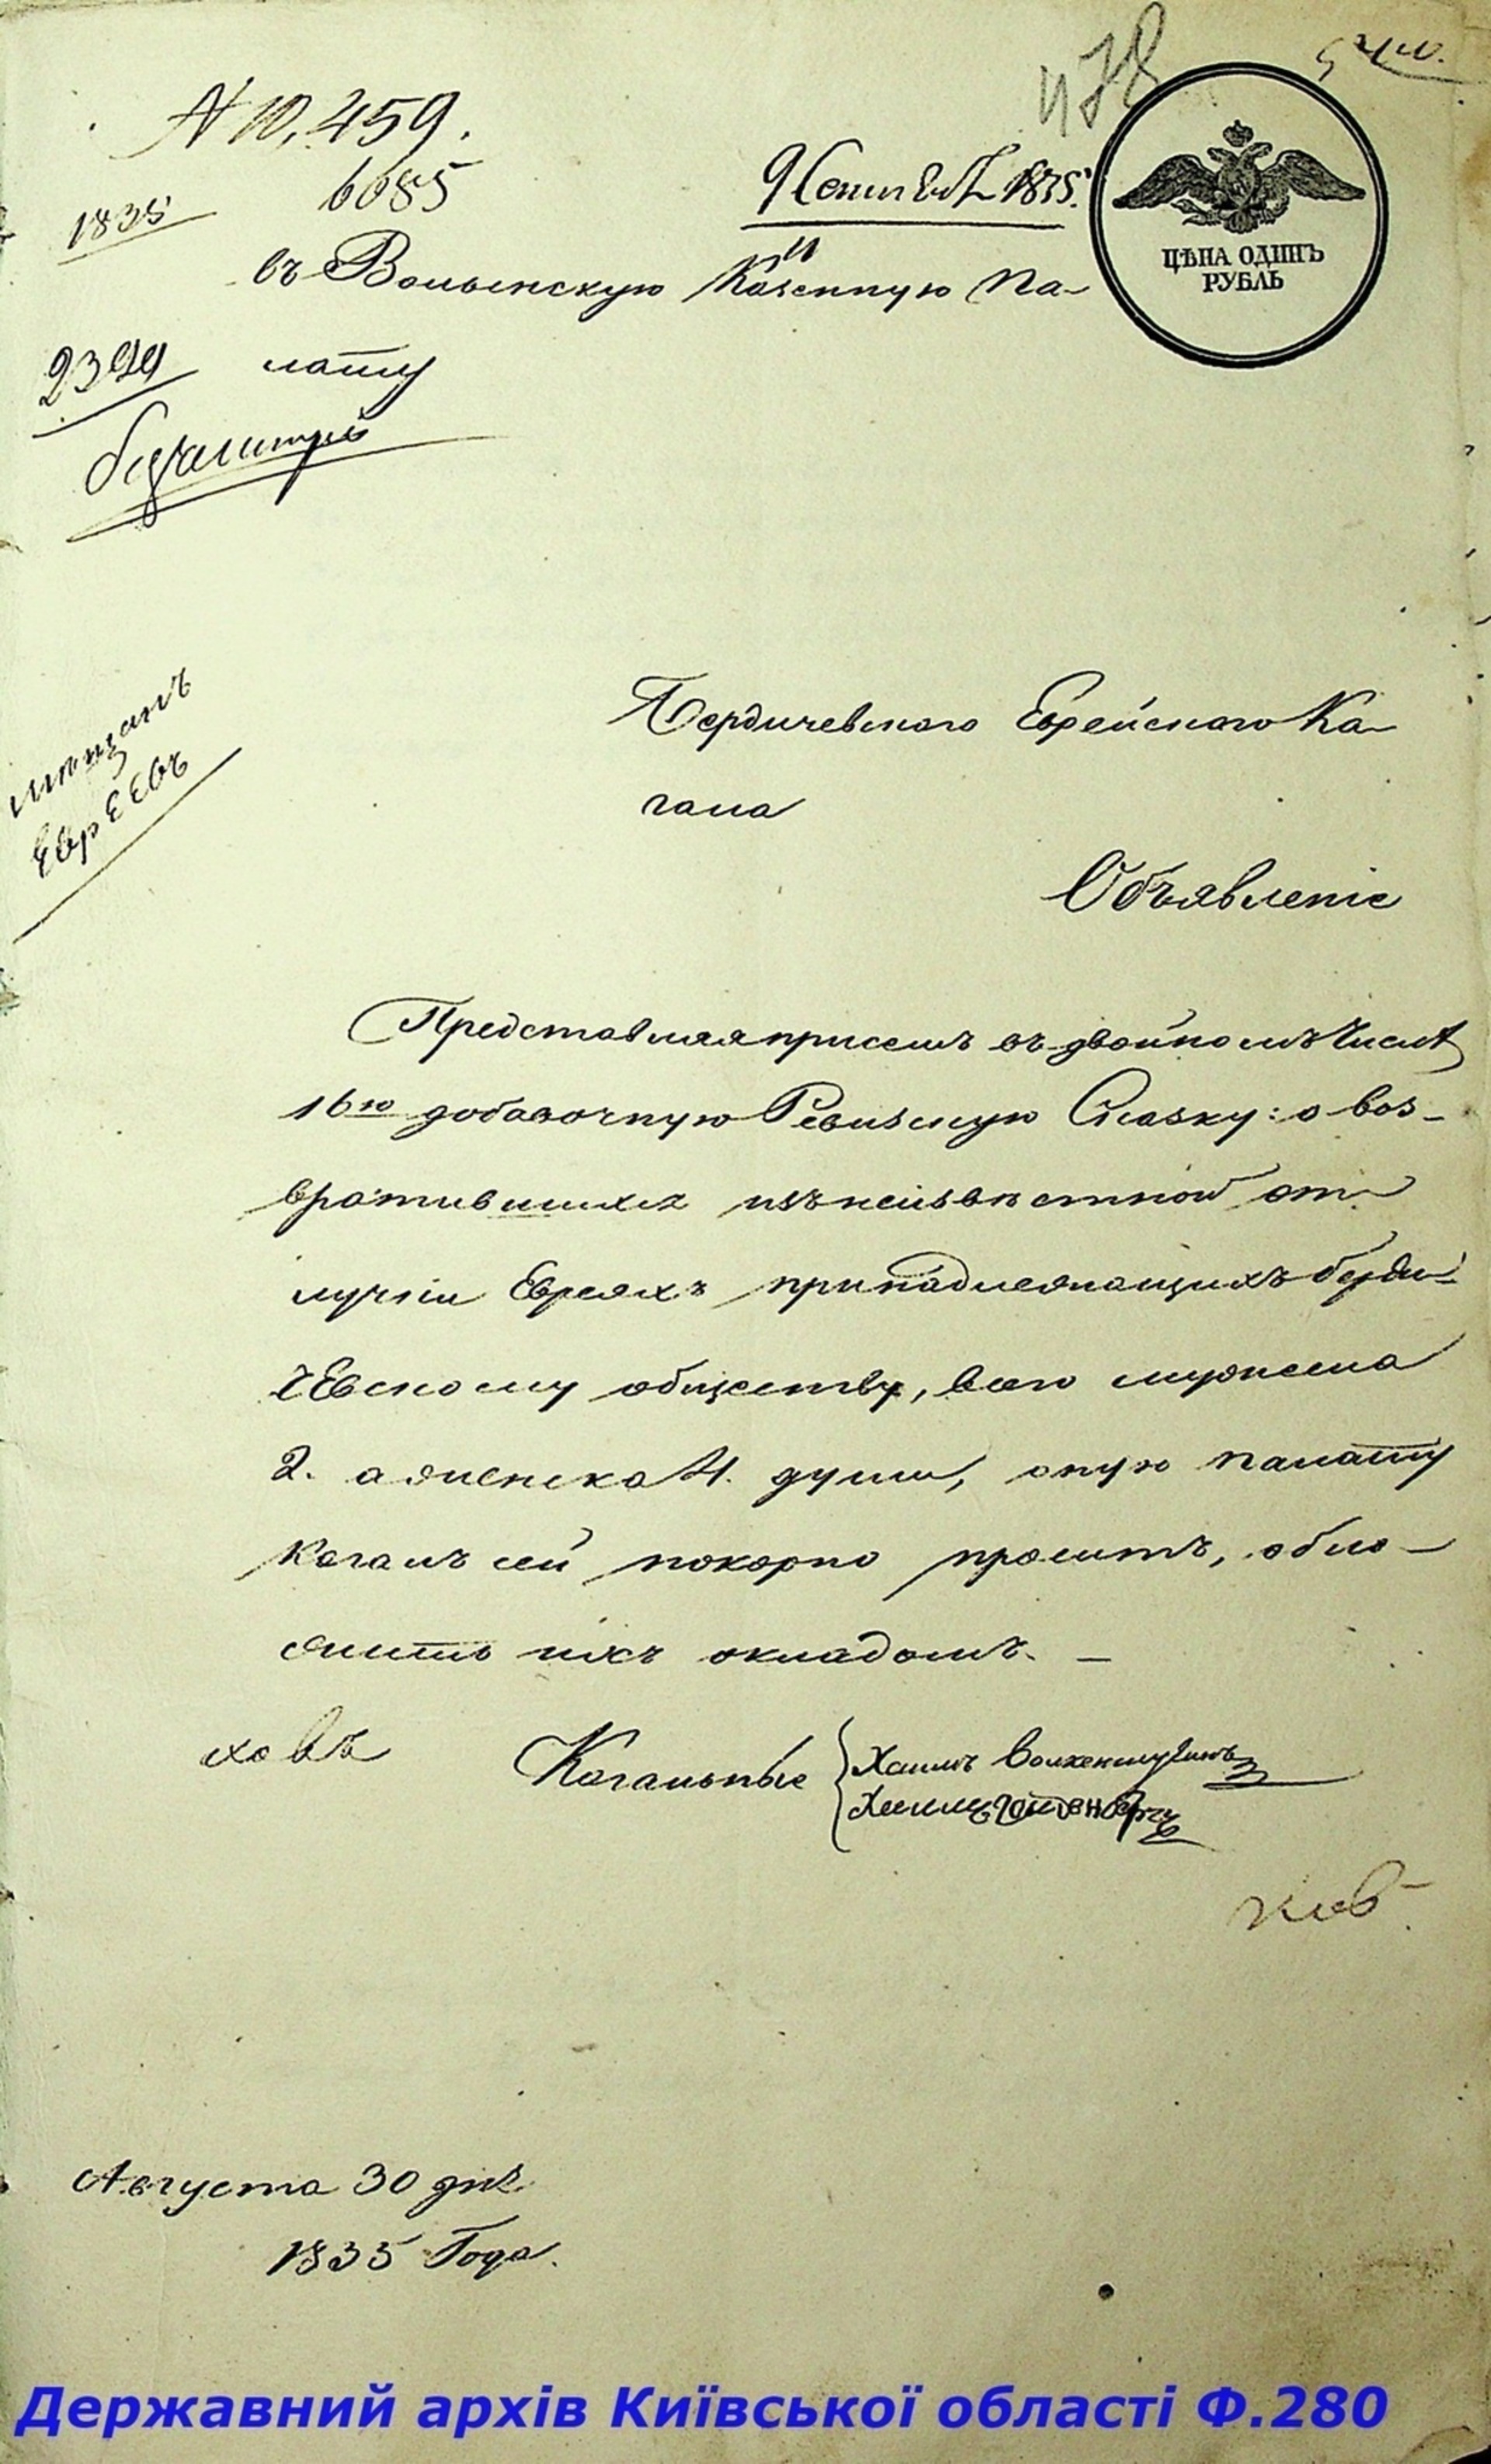 478
N 10,459.
6085
1835
9 Сентября 1835.
ЦѢНА ОДИНЪ
РУБЛЬ
въ Волынскую Казенную Па-
лату
2394
мѣщанъ
Евреевъ
Бердичевского Еврейского Ка-
гала
Объявленіе
Представляя присемъ въ двойномъ числѣ
16ю добавочную Ревизскую Сказку: о воз-
вратившихся изъ неизвѣстной от-
лучки Евреяхъ принадлежащихъ берди-
чевскому обществу, всего мужеска
2. а женска 4. души, оную палату
Кагалъ сей покорно проситъ, обло-
жить ихъ окладомъ. —
Кагальные
Хаимъ
Августа 30 дня
1835 Года.
Державний архів Київської області Ф.280